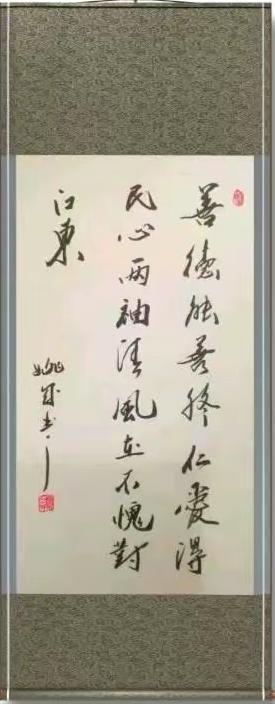 善德能善終仁愛得
民心兩袖清風在不愧對
江東